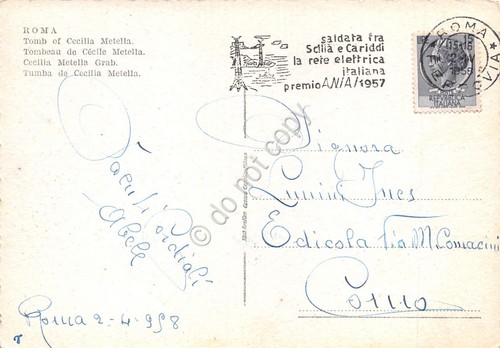 ROMA
Tomb of Cecilia Metella.
Tombeau de Cécile Metella.
Cecilia Metella Grab.
Tumba de Cecilia Metella.
saldata fra
Scilla e Cariddi
la rete elettrica
italiana
premio ANIAI 1957
ROMA
15-16
1958
do not copy
Signora
Lunini Ines
Edicola Via M. Comacini
Como
Saluti Cordiali
Abele
Roma 2-4-958